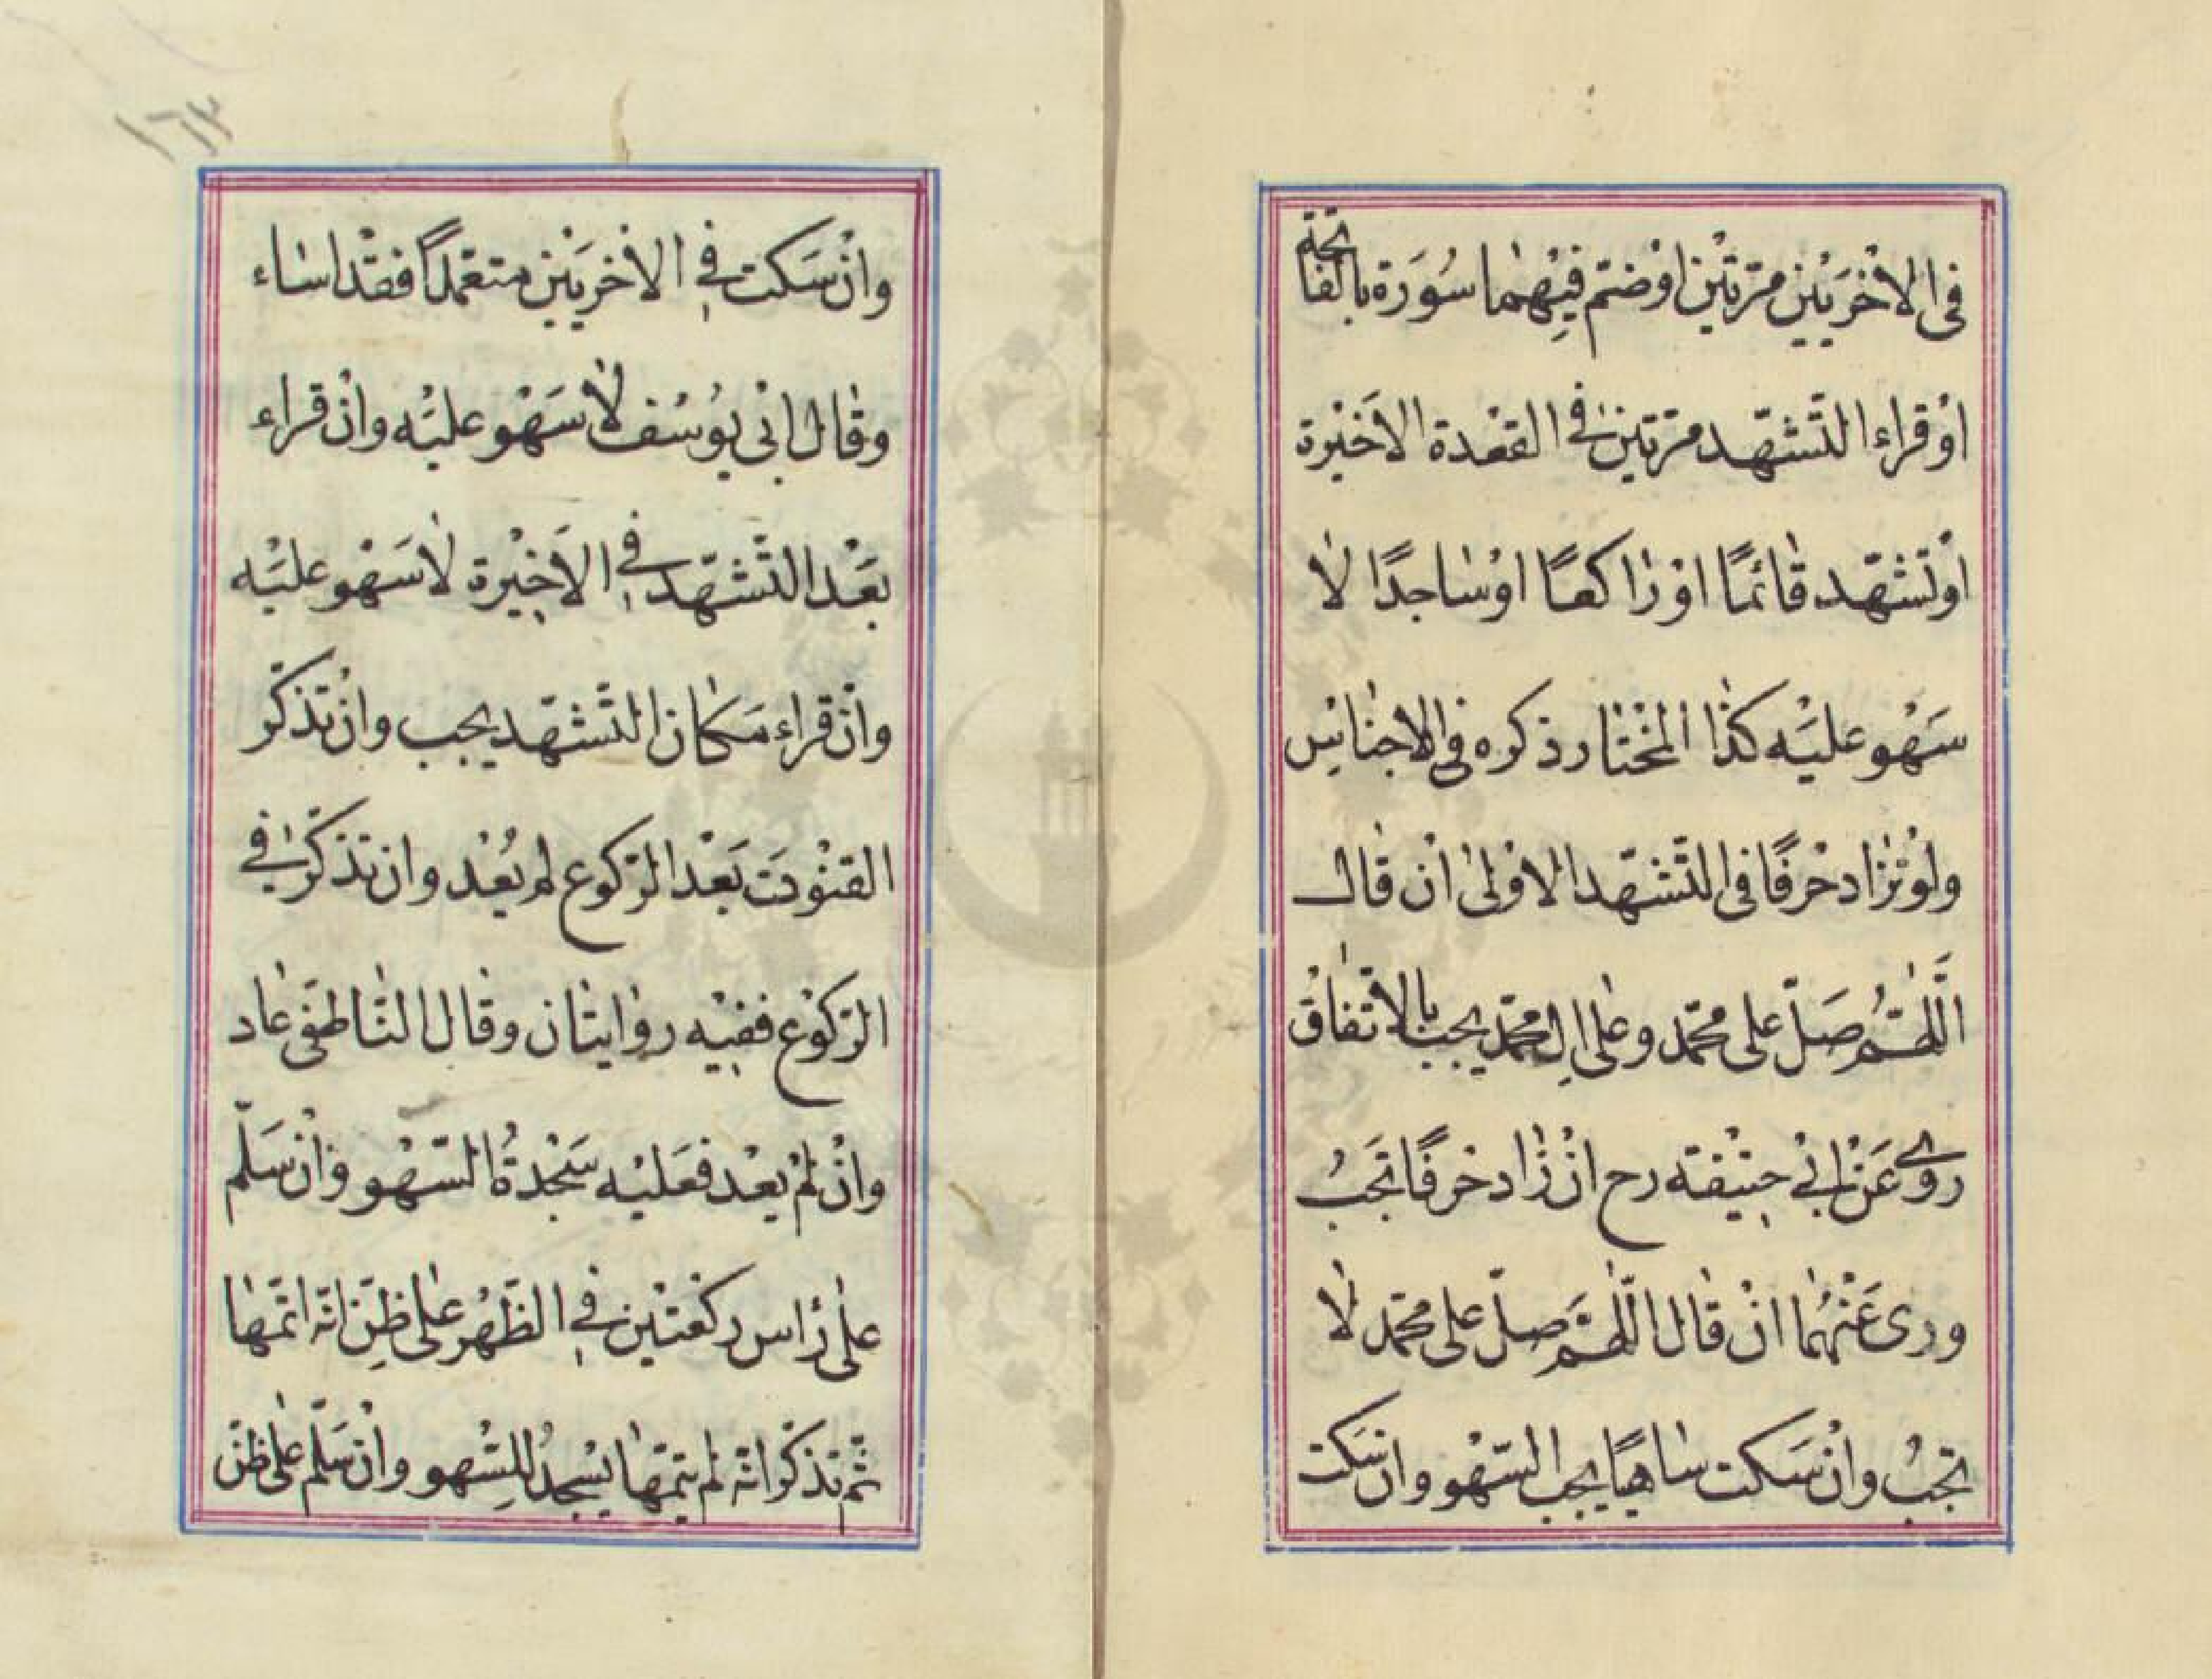 فى الاخريين مرتين او ضم فيهما سورة بالفاتحة
او قراء التشهد مرتين فى القعدة الاخيرة
او تشهد قائما او راكعا او ساجدا لا
سهو عليه كذا المختار ذكره فى الاجناس
ولو زاد حرفا فى التشهد الاولى ان قال
اللهم صل على محمد وعلى ال محمد يجب بالاتفاق
روى عن ابى حنيفة رح ان زاد حرفا تجب
ورى عنهما ان قال اللهم صل على محمد لا
تجب وان سكت ساهيا يجب السهو وان سكت
وان سكت فى الاخريين متعمدا فقد اساء
وقال ابى يوسف لا سهو عليه وان قراء
بعد التشهد فى الاخيرة لا سهو عليه
وان قراء مكان التشهد يجب وان تذكر
القنوت بعد الركوع لم يعد وان تذكر فى
الركوع ففيه روايتان وقال الناطفى عاد
وان لم يعد فعليه سجدة السهو وان سلم
على رأس ركعتين فى الظهر على ظن انه اتمها
ثم تذكر انه لم يتمها يسجد للسهو وان سلم على ظن